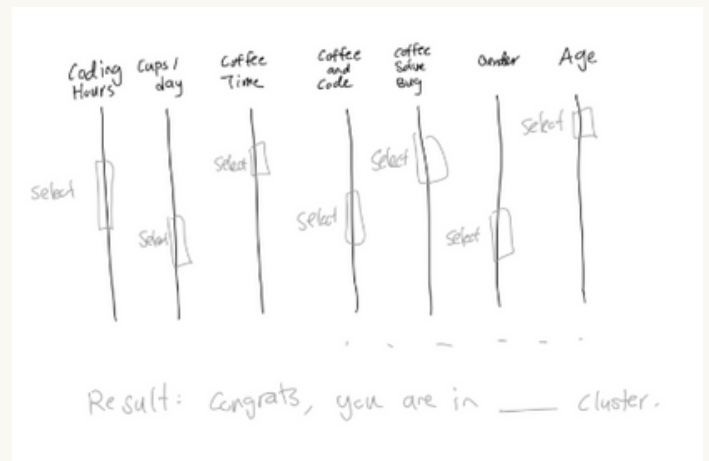 Coding Hours
Cups/ day
Coffee Time
Coffee and Code
Coffee Solve Bug
Gender
Age
Select
Select
Select
Select
Select
Select
Select
Result: Congrats, you are in ____ cluster.